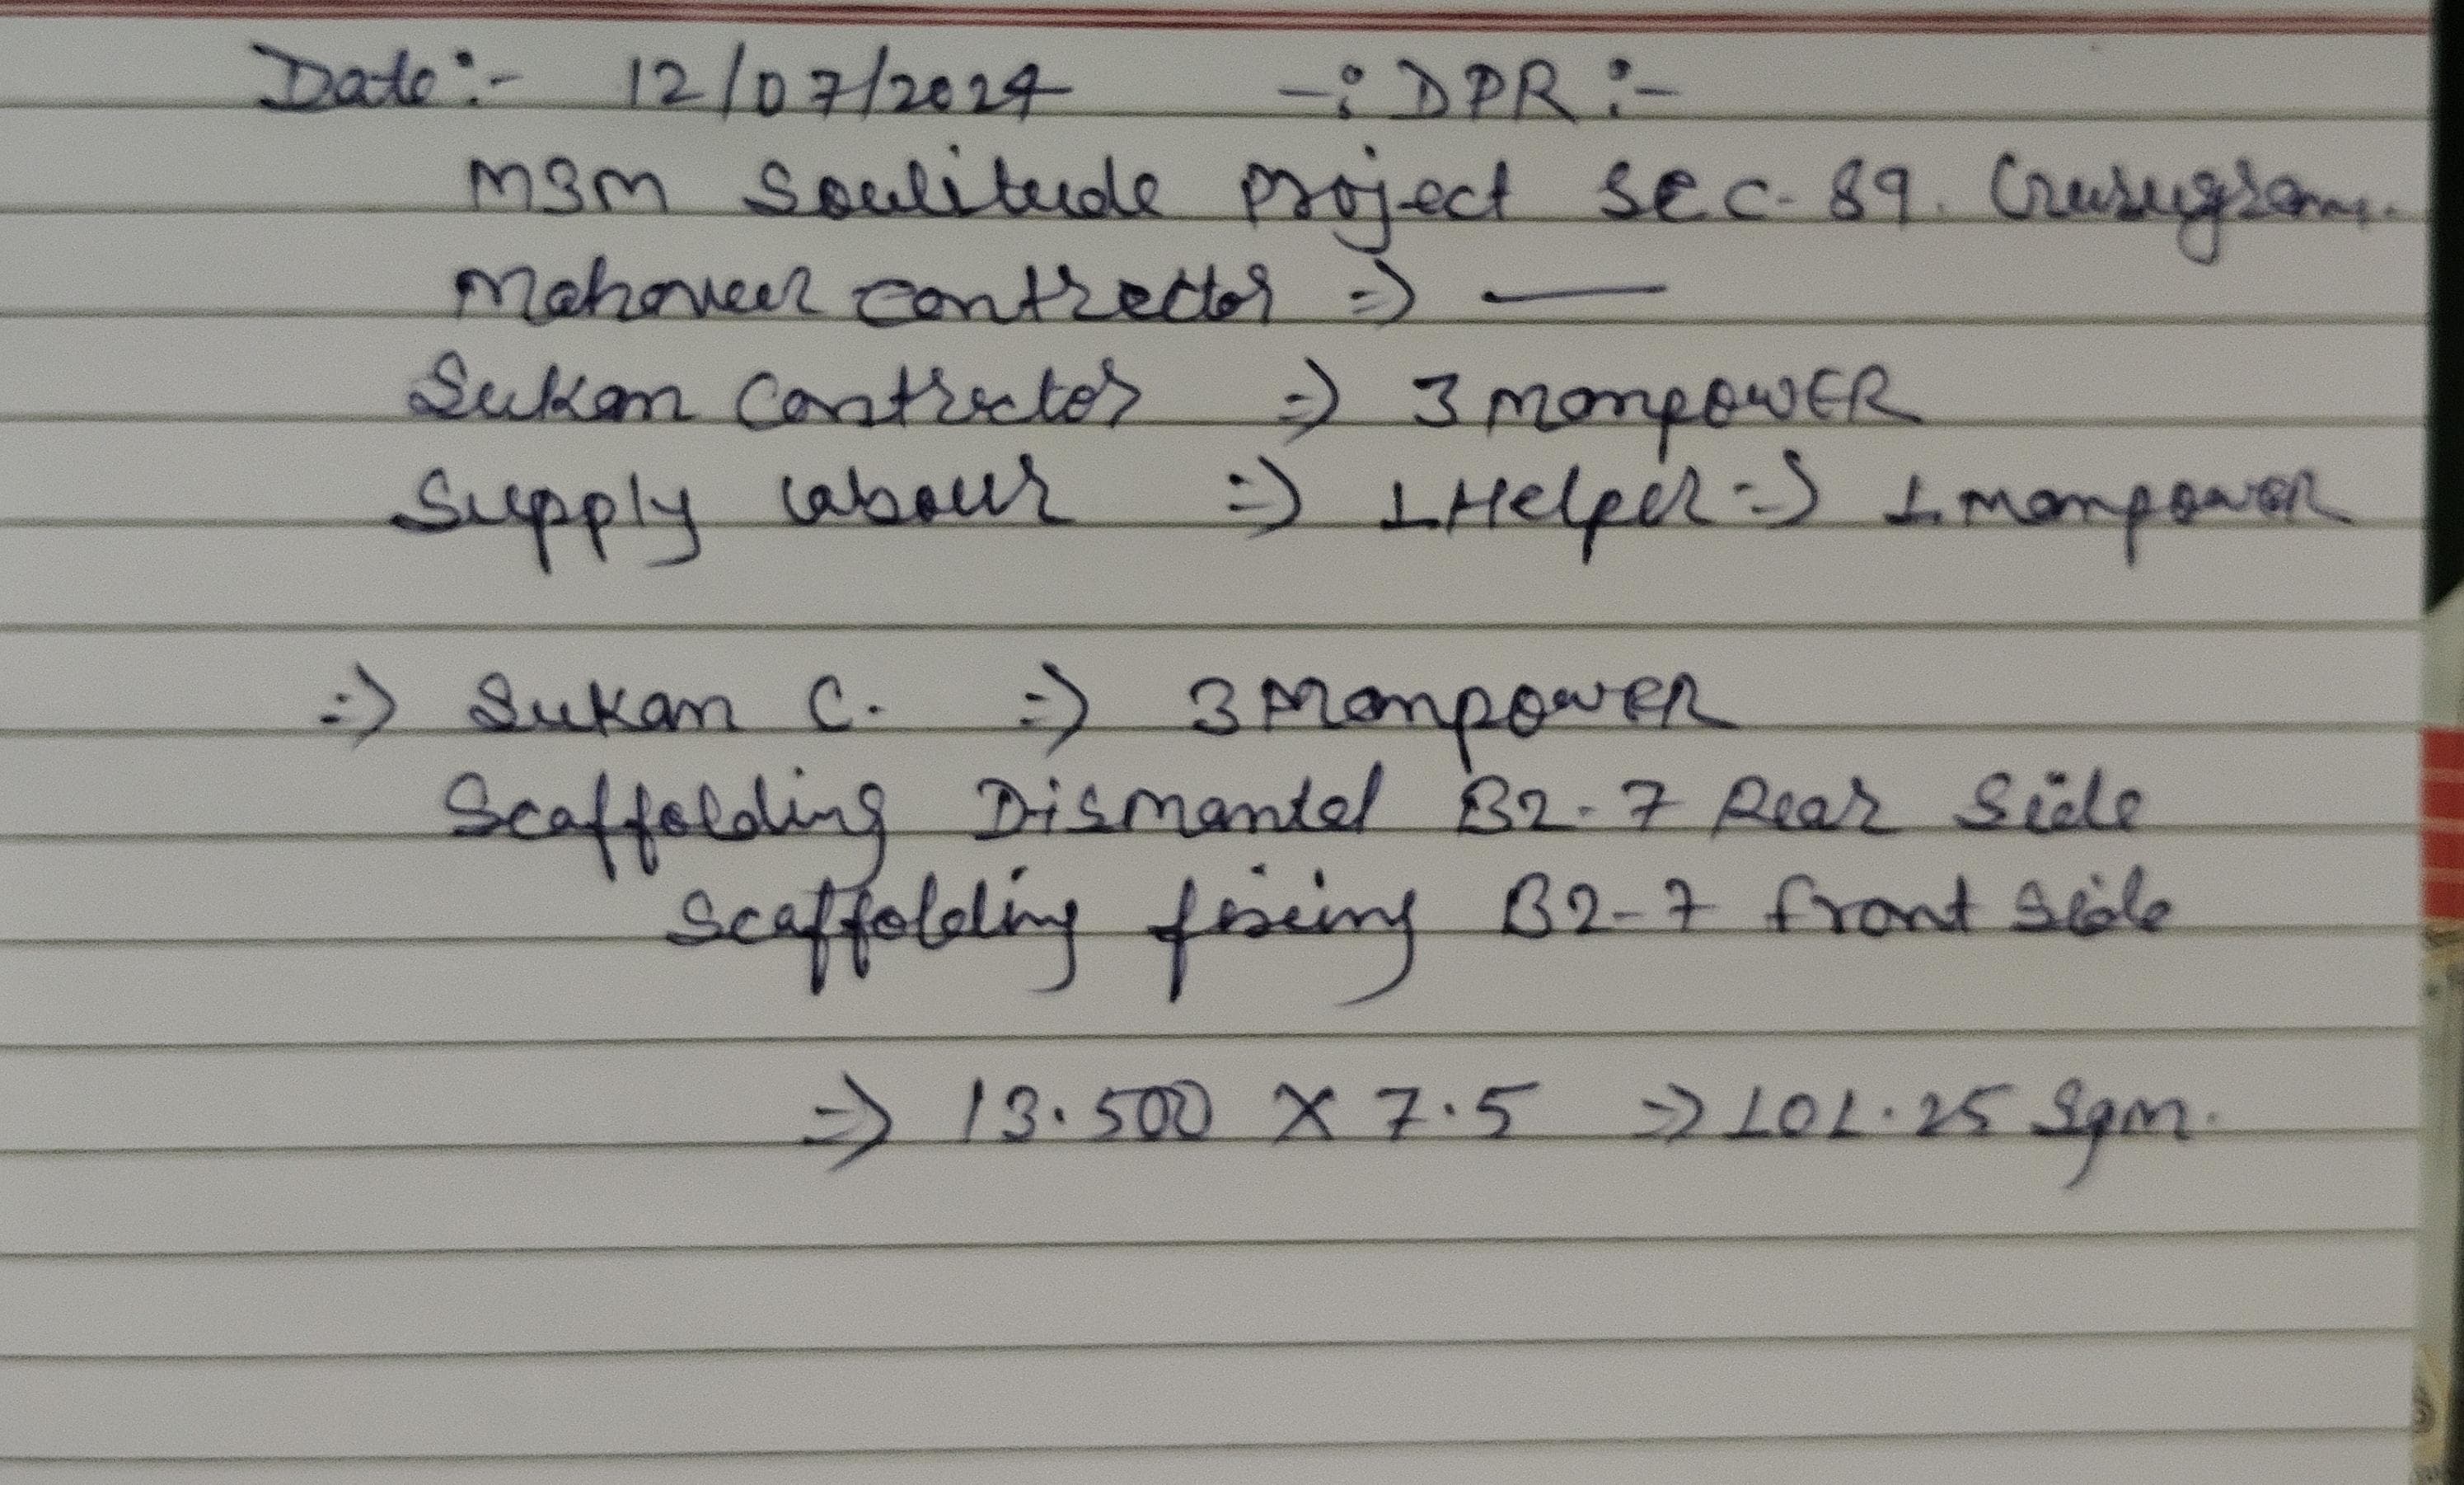 Date:- 12/07/2024 -: DPR :-
M3M Soulitude project SEC-89. Gurugram.
Mahaveer contrector => —
Sukan Contrector => 3 manpowER
Supply labour => 1 Helper => 1 manpower
=> Sukan C. => 3 Manpower
Scaffolding Dismantel B2-7 Rear Side
Scaffolding fixing B2-7 front Side
=> 13.500 X 7.5 => 101.25 Sqm.